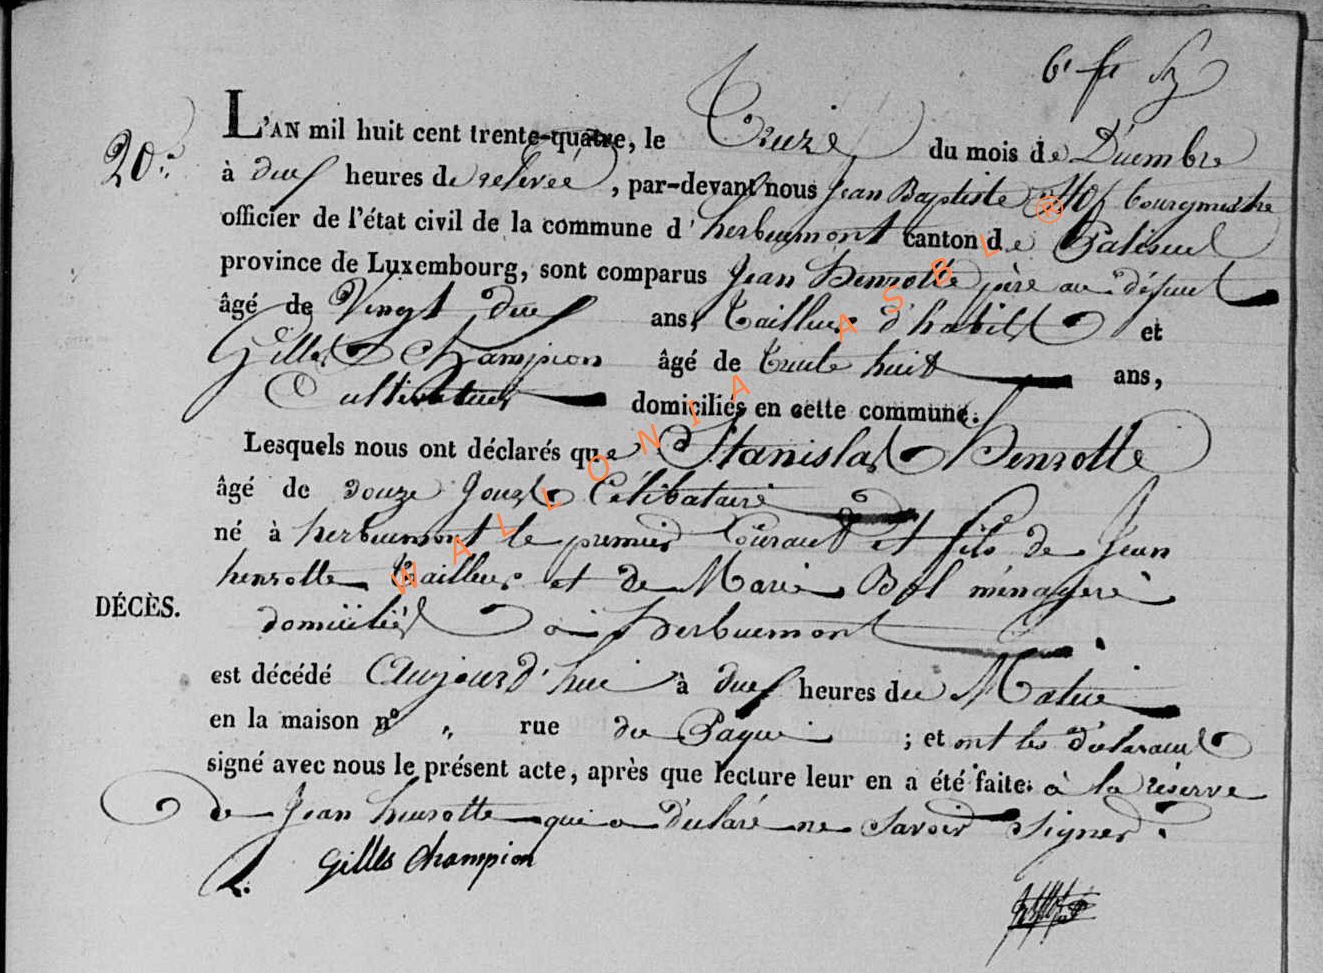 20.
L'AN mil huit cent trente-quatre, le Treize du mois de Décembre
à deux heures de relevée, par-devant nous Jean Baptiste bourgmestre
officier de l'état civil de la commune d'herbeumont canton de Paliseul
province de Luxembourg, sont comparus Jean Henrotte père au défunt
âgé de Vingt deux ans, Tailleur d'habits et
Gilles Champion âgé de trente huit ans,
Cultivateur domiciliés en cette commune.
Lesquels nous ont déclarés que Stanislas Henrotte
âgé de douze Jours Célibataire
né à herbeumont le premier Courant et fils de Jean
henrotte Tailleur et de Marie ménagère
DÉCÈS.
domiciliés à Herbeumont
est décédé Aujourd'hui à deux heures du Matin
en la maison n° " rue du ; et ont les déclarants
signé avec nous le présent acte, après que lecture leur en a été faite. à la réserve
de Jean henrotte qui a déclaré ne savoir signer.
Gilles Champion
WALLONIA ASBL ®